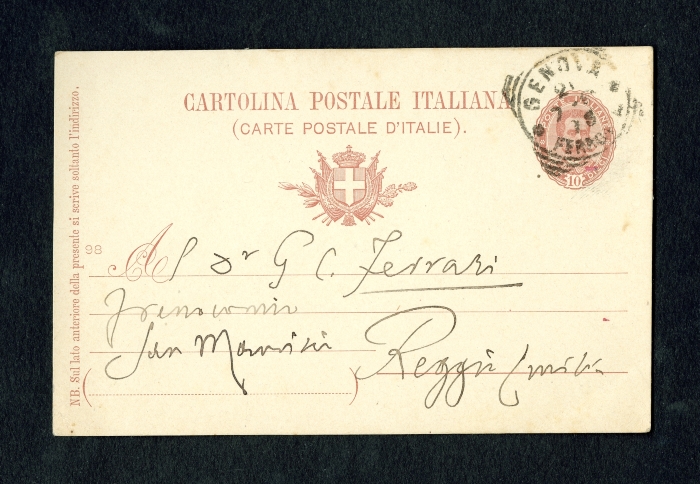 CARTOLINA POSTALE ITALIANA
(CARTE POSTALE D'ITALIE).
GENOVA
10
NB. Sul lato anteriore della presente si scrive soltanto l'indirizzo.
98
Al Dr G C. Ferrari
Frenocomio
San Maurizio
Reggio Emilia